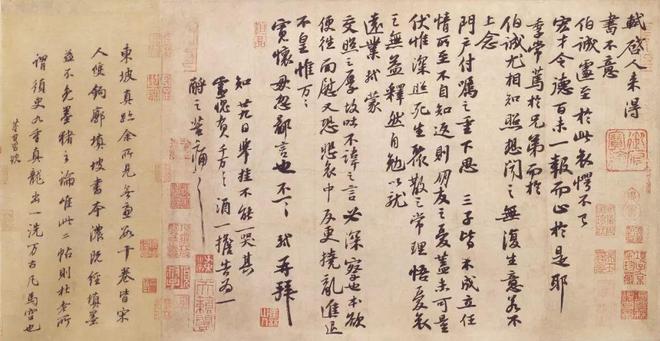 軾啓人來得
書不意
伯誠遽至於此哀愕不已
宏才令德百未一報而止於是耶
季常篤於兄弟而於
伯誠尤相知照想聞之無復生意若不
上念
門户付囑之重下思三子皆不成立任
情所至不自知返則朋友之憂蓋未可量
伏惟深照死生聚散之常理悟憂哀
之無益釋然自勉以就
遠業軾蒙
交照之厚故吐不諱之言必深察也本欲
便往面慰又恐悲哀中反更撓亂進退
不皇惟万万
寬懷毋忽鄙言也不一一軾再拜
知廿九日舉掛不能一哭其
靈愧負千万千万酒一擔告為一
酹之苦痛苦痛
東坡真跡余所見無慮數十卷皆宋
人雙鉤廓填坡書本濃既經填墨
蓋不免墨豬之論唯此二帖則杜老所
謂須臾九重真龍出一洗萬古凡馬空也
董其昌題